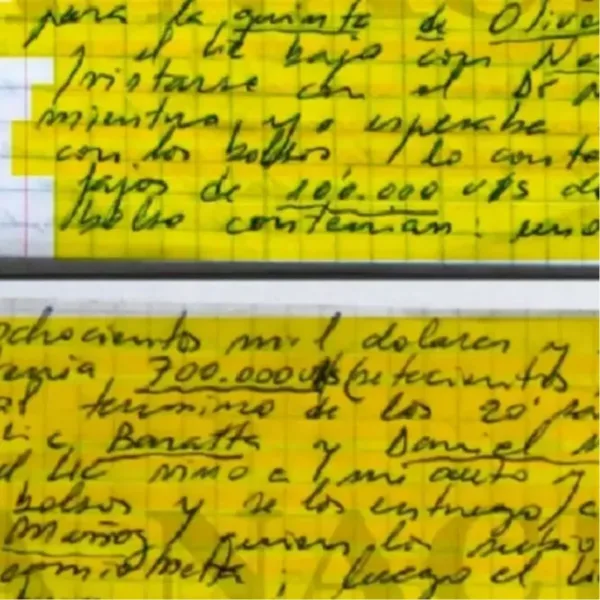 para la quinta de Olivo
y el Lic bajo con Ne
/ristarse con el De N
mientras yo esperaba
con los bolsos / lo conto
fajos de 100.000 u$s d
bolso contenian: uno
ochocientos mil dolares y
enia 700.000 u$s (setecientos
al termino de los 20' pa
Lic Baratta y Daniel M
el Lic vino a / mi auto y
bolsos y se los entrego / a
Muñoz / quien los subio
camioneta, luego el Li
NAC